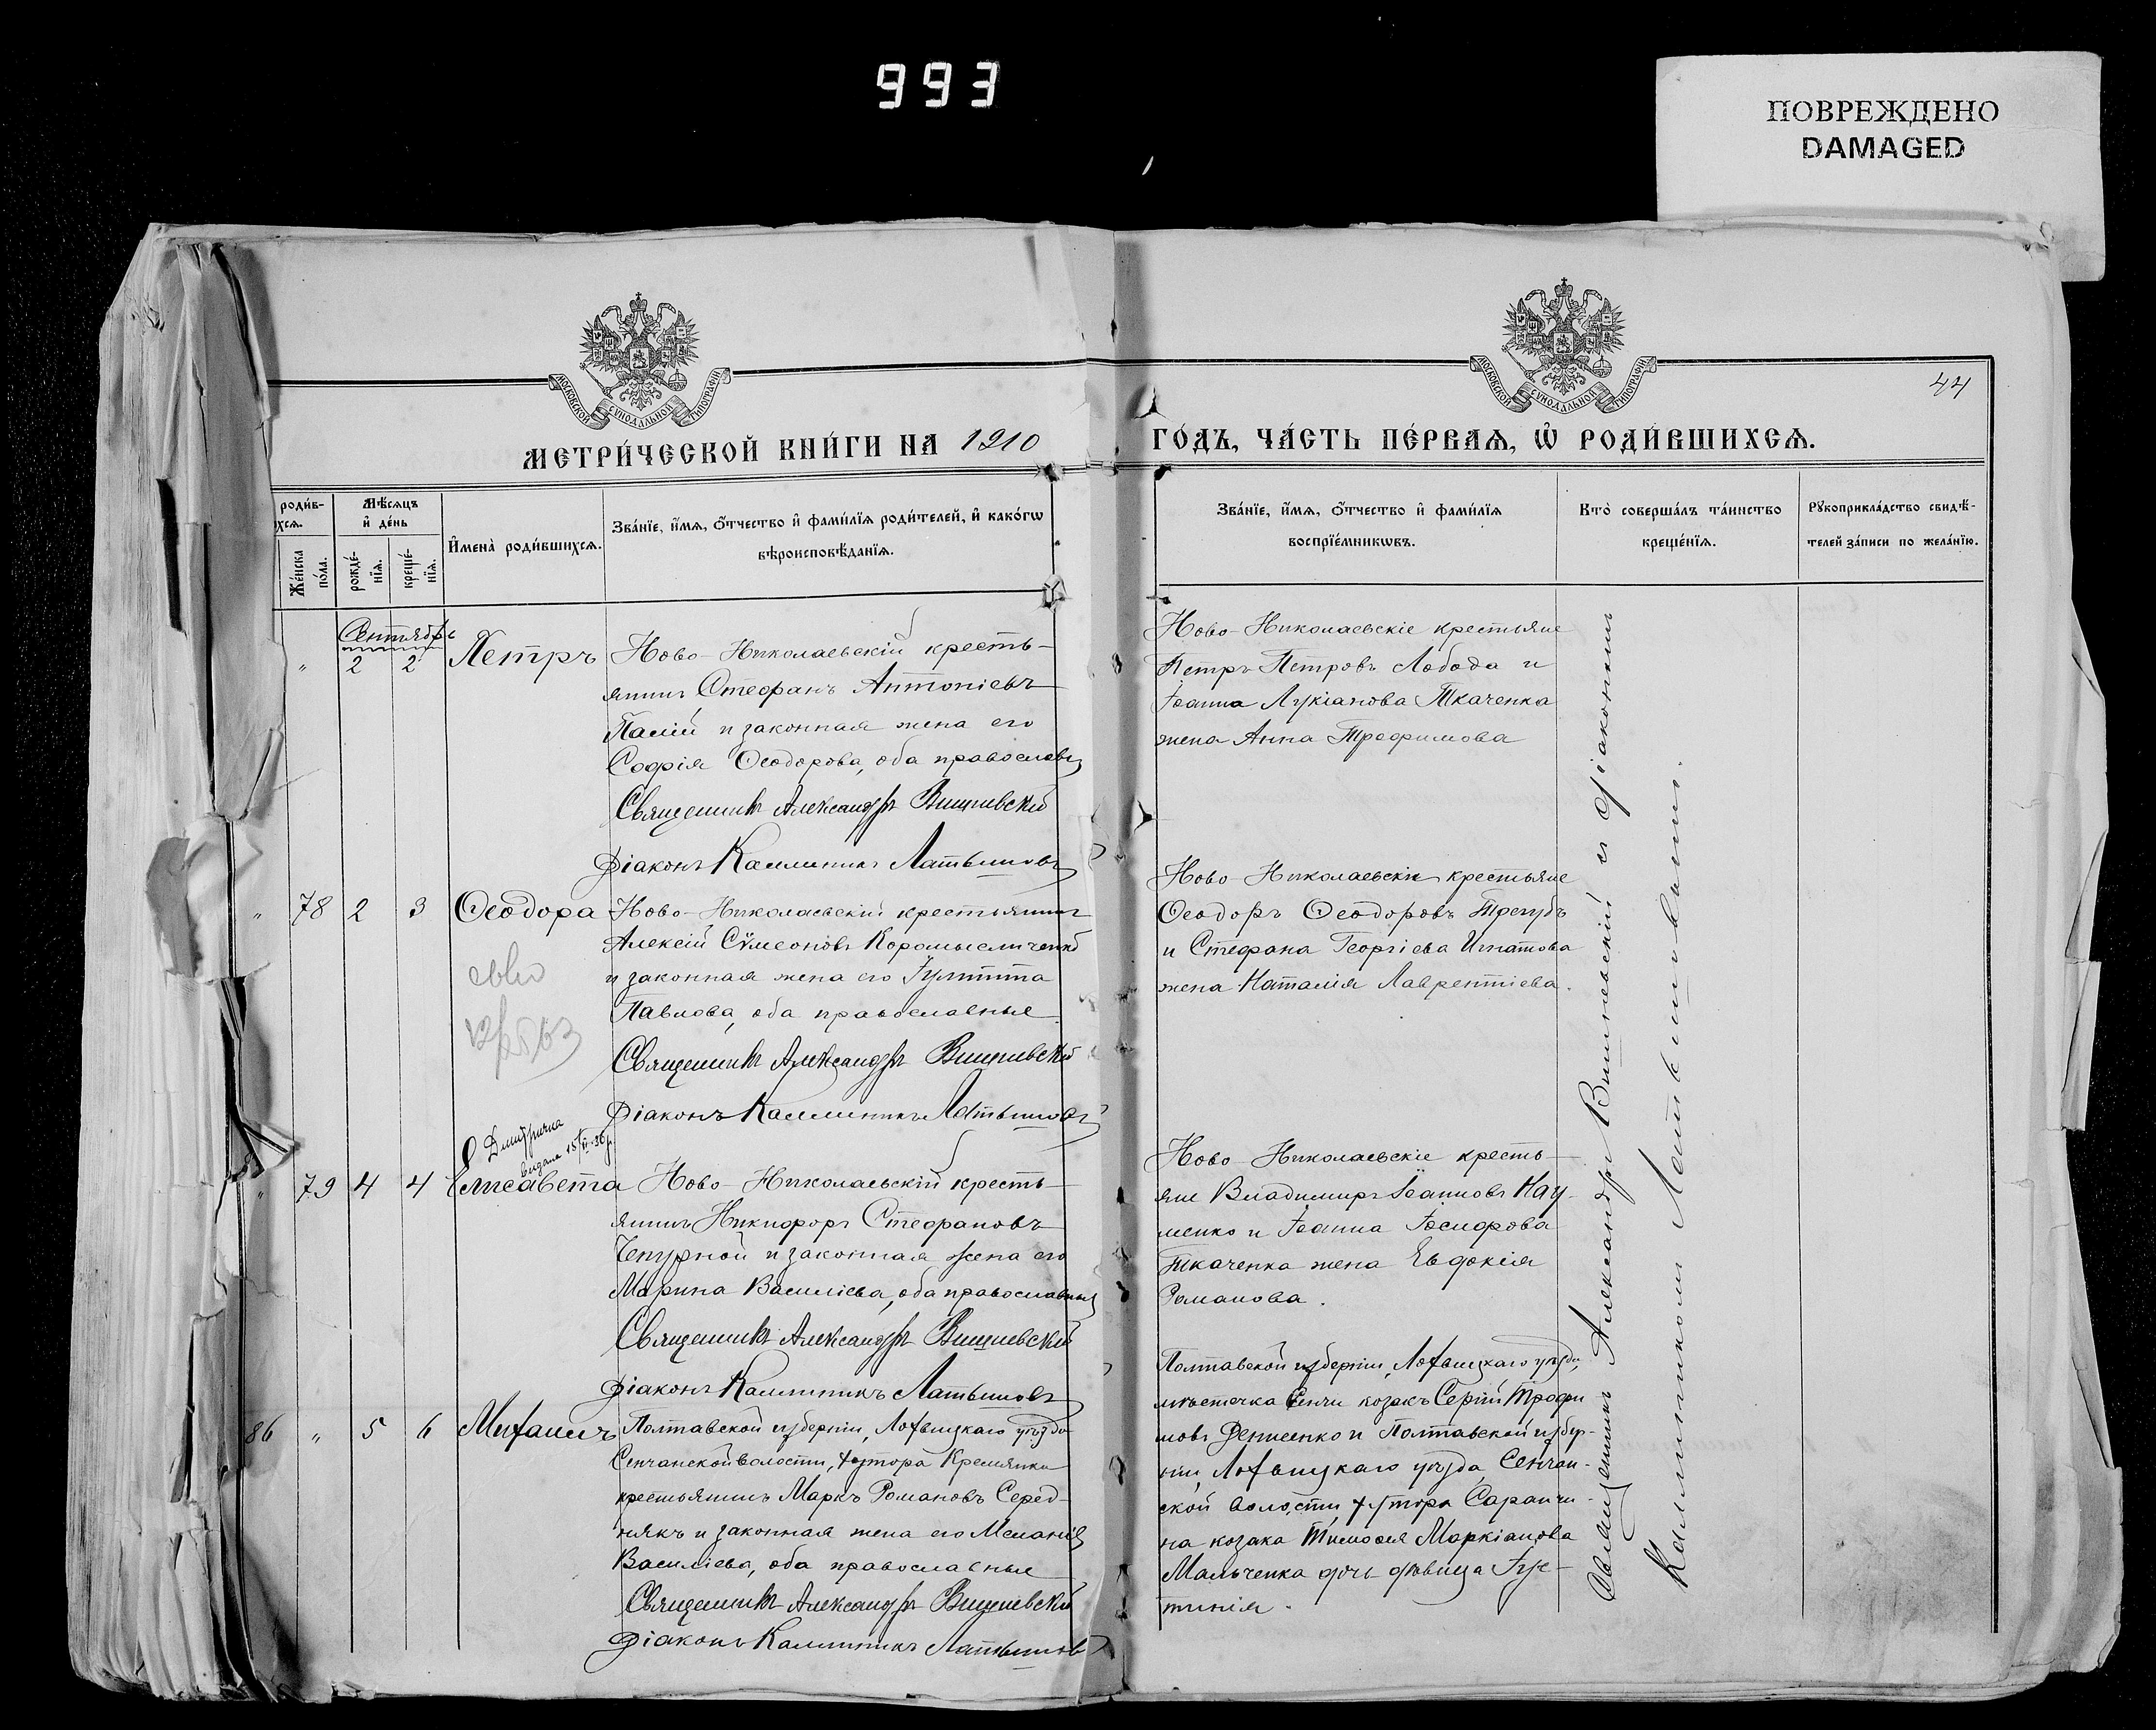 993
ПОВРЕЖДЕНО
DAMAGED
МОСКОВСКОЙ СѴНОДАЛЬНОЙ ТИПОГРАФІИ
МОСКОВСКОЙ СѴНОДАЛЬНОЙ ТИПОГРАФІИ
44
МЕТРИ́ЧЕСКОЙ КНИ́ГИ НА 1910
ГО́ДЪ, ЧА́СТЬ ПЕ́РВАѦ, Ѡ҆ РОДИ́ВШИХСѦ.
роди́в-
хсѧ.
Же́нска
по́ла.
Мѣ́сѧцъ
и҆ де́нь
рожде́-
нїѧ.
креще́-
нїѧ.
И҆мена̀ роди́вшихсѧ.
Зва́нїе, и҆́мѧ, ѻ҆́тчество и҆ фами́лїѧ роди́телей, и҆ како́гѡ
вѣроисповѣ́данїѧ.
Зва́нїе, и҆́мѧ, ѻ҆́тчество и҆ фами́лїѧ
воспрїе́мникѡвъ.
Кто̀ соверша́лъ та́инство
креще́нїѧ.
Рꙋкоприкла́дство свидѣ́-
телей за́писи по жела́нїю.
Сентябрь
„ 2 2 Петръ
Ново-Николаевскій кресть-
янинъ Стефанъ Антоніевъ
Палій и законная жена его
Софія Ѳеодорова, оба православн
Священникъ Александръ Вишневскій
Діаконъ Каллиникъ Латышовъ
Ново-Николаевскіе крестьяне
Петръ Петровъ Лобода и
Іоанна Лукіанова Ткаченка
жена Анна Трофимова
„ 78 2 3 Ѳеодора
Ново-Николаевскій крестьянинъ
Алексій Сѵмеоновъ Коромысличенко
и законная жена его Іулитта
Павлова, оба православные
Священникъ Александръ Вишневскій
Діаконъ Каллиникъ Латышовъ
Ново-Николаевскіе крестьяне
Ѳеодоръ Ѳеодоровъ Трегубъ
и Стефана Георгіева Игнатова
жена Наталія Лаврентіева.
„ 79 4 4 Елисавета
Ново-Николаевскій кресть-
янинъ Никифоръ Стефановъ
Чепурной и законная жена его
Марина Василіева, оба православные
Священникъ Александръ Вишневскій
Діаконъ Каллиникъ Латышовъ
Ново-Николаевскіе кресть-
яне Владимиръ Іоанновъ Нау-
менко и Іоанна Іосифова
Ткаченка жена Евдокія
Романова.
86 „ 5 6 Михаилъ
Полтавской губерніи, Лохвицкаго уѣзда
Сенчанской волости, хутора Кремянки
крестьянинъ Маркъ Романовъ Серед-
някъ и законная жена его Меланія
Василіева, оба православные
Священникъ Александръ Вишневскій
Діаконъ Каллиникъ Латышовъ
Полтавской губерніи, Лохвицкаго уѣзда,
мѣстечка Сенчи козакъ Сергій Трофи
мовъ Денисенко и Полтавской губер-
ніи, Лохвицкаго уѣзда, Сенчан-
ской волости, хутора Саранчи-
на козака Тимоѳея Маркіанова
Мальченка дочь дѣвица Іус-
тинія.
Священникъ Александръ Вишневскій съ діакономъ
Каллиникомъ Латышовымъ.